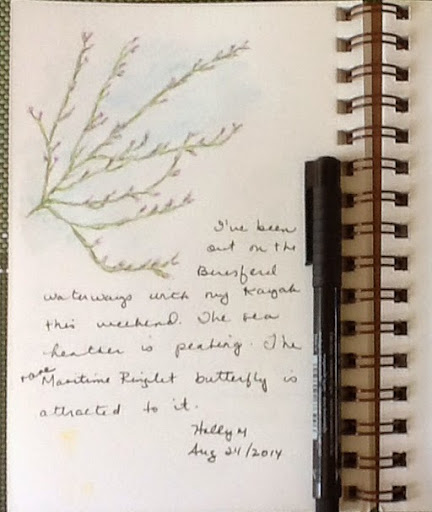 I've been
out on the
Beresford
waterways with my Kayak
this weekend. The sea
heather is peaking. The
rare Maritime Ringlet butterfly is
attracted to it.
Holly M
Aug 24/2014